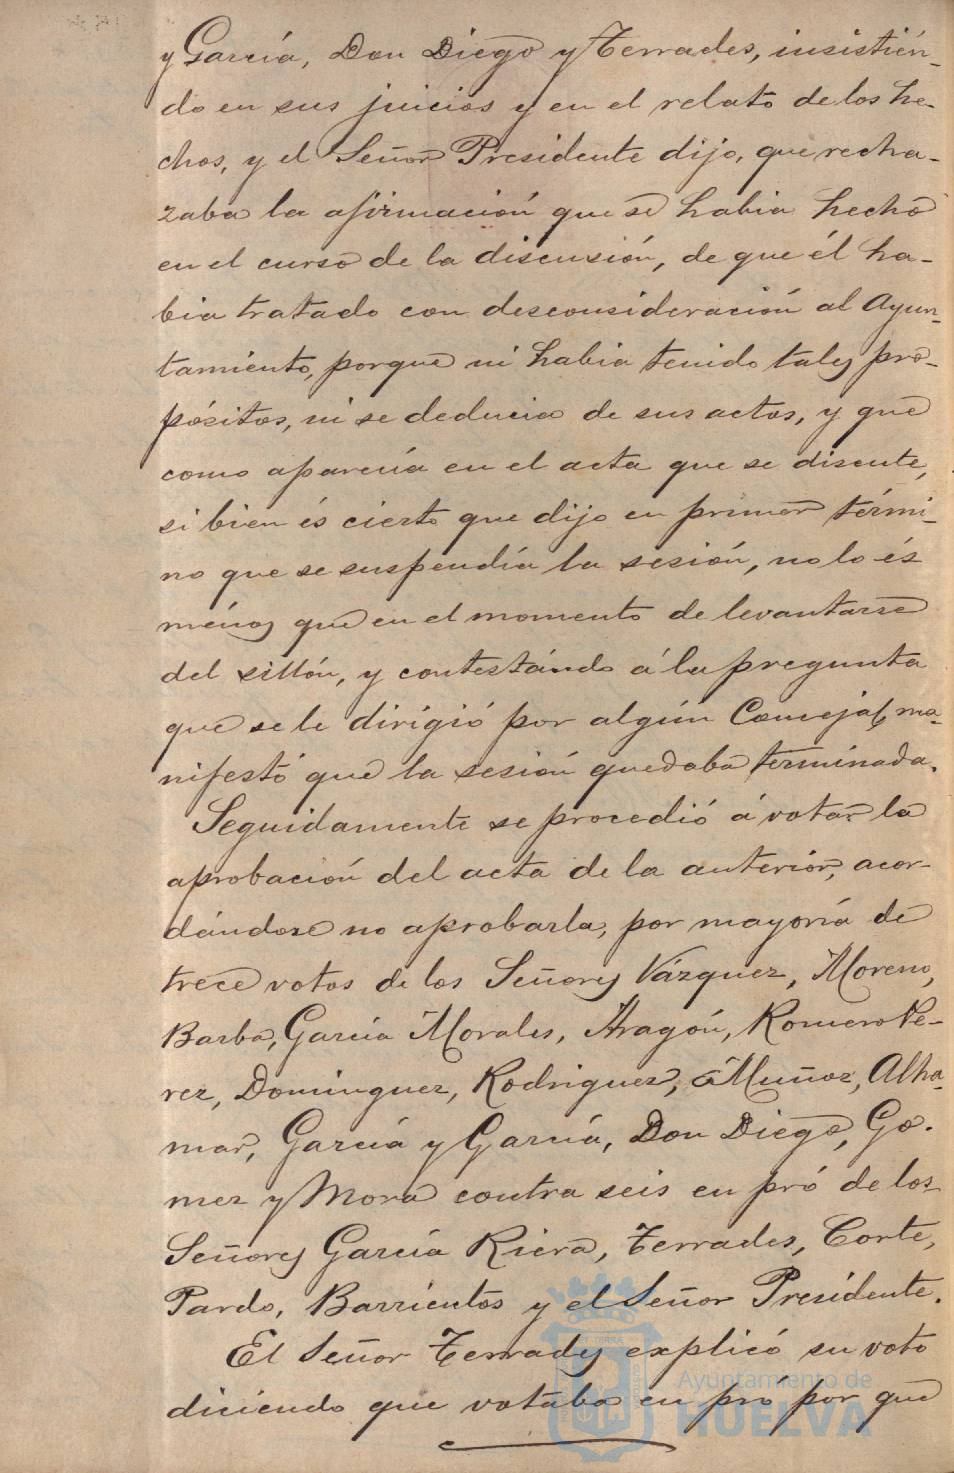 y García, Don Diego y Terrades, insistién-
do en sus juicios y en el relato de los he-
chos, y el Señor Presidente dijo, que recha-
zaba la afirmación que se habia hecho
en el curso de la discusión, de que él ha-
bia tratado con desconsideración al Ayun-
tamiento, porque ni habia tenido tales pro-
pósitos, ni se deducia de sus actos, y que
como aparecía en el acta que se discute,
si bien és cierto que dijo en primer térmi-
no que se suspendía la sesión, no lo és
ménos que en el momento de levantarse
del sillón, y contestándo á la pregunta
que se le dirigió por algún Concejal, ma-
nifestó que la sesión quedaba terminada.
Seguidamente se procedió á votar la
aprobación del acta de la anterior, acor-
dándose no aprobarla, por mayoría de
trece votos de los Señores Vázquez, Moreno,
Barba, García Morales, Aragón, Romero Pe-
rez, Dominguez, Rodriguez, Muñoz, Alha-
mar, García y García, Don Diego, Go-
mez y Mora contra seis en pró de los
Señores García Riera, Terrades, Corte,
Pardo, Barrientos y el Señor Presidente.
El Señor Terrades explicó su voto
diciendo que votaba en pró por que
Ayuntamiento de
HUELVA